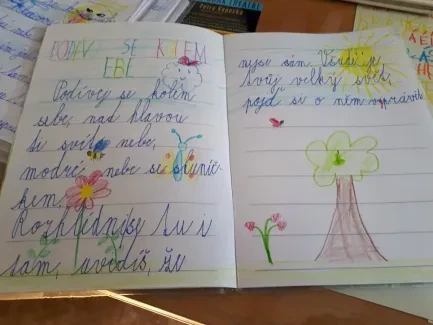 PODÍV SE KOLEM
EBE
Podívej se kolem
sebe, nad hlavou
ti svítí nebe,
modré nebe se sluníč-
kem.
Rozhlédni se tu i
sám, uvidíš, že
nejse sám. Všude je
svůj velký svět,
pojď si o něm vyprávět.